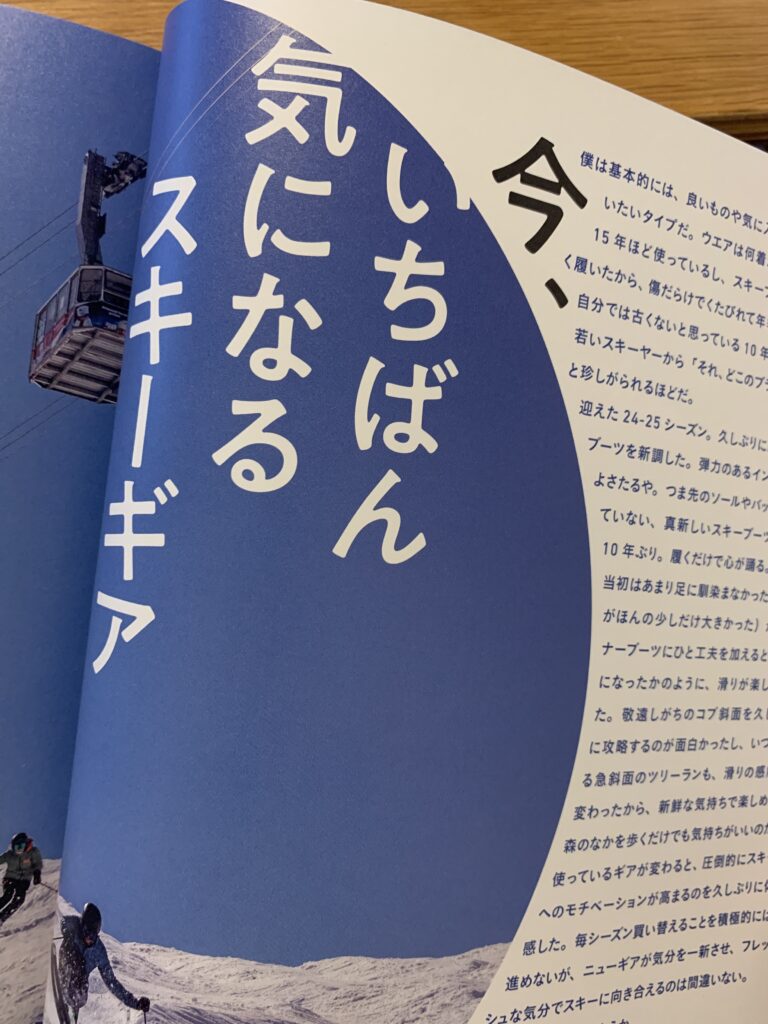 今、
いちばん
気になる
スキーギア
僕は基本的には、良いものや気に入
いたいタイプだ。ウエアは何着
15年ほど使っているし、スキーブ
く履いたから、傷だらけでくたびれて年
自分では古くないと思っている10年
若いスキーヤーから「それ、どこのブラ
と珍しがられるほどだ。
迎えた24-25シーズン。久しぶりに
ブーツを新調した。弾力のあるイン
よさたるや。つま先のソールやバッ
ていない、真新しいスキーブーツ
10年ぶり。履くだけで心が踊る。
当初はあまり足に馴染まなかった
がほんの少しだけ大きかった）
ナーブーツにひと工夫を加えると
になったかのように、滑りが楽し
た。敬遠しがちのコブ斜面を久し
に攻略するのが面白かったし、いつ
る急斜面のツリーランも、滑りの感
変わったから、新鮮な気持ちで楽しめ
森のなかを歩くだけでも気持ちがいいのだ
使っているギアが変わると、圧倒的にスキ
へのモチベーションが高まるのを久しぶりに体
感した。毎シーズン買い替えることを積極的には
進めないが、ニューギアが気分を一新させ、フレッ
シュな気分でスキーに向き合えるのは間違いない。